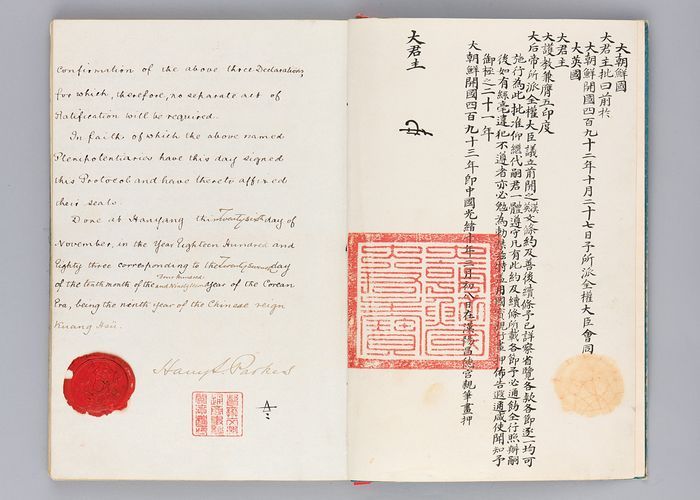 Confirmation of the above three Declarations,
for which, therefore, no separate act of
Ratification will be required.
In faith of which the above named
Plenipotentiaries have this day signed
this Protocol and have thereto affixed
their seals.
Done at Hanyang this Twenty sixth day of
November, in the Year Eighteen Hundred and
Eighty three corresponding to the Twenty Seventh day
of the tenth month of the Four Hundred and Ninety Second Year of the Corean
Era, being the ninth year of the Chinese reign
Kuang Hsü.
Harry S Parkes
大朝鮮國
大君主批曰前於
大朝鮮開國四百九十二年十月二十七日予所派全權大臣會同
大英國
大君主
大護敎兼膺五印度
大后帝所派全權大臣議立前開之漢英文條約及善後續條予已詳察省覽各款各節逐一均可
施行為此批准仰繼代嗣君一體遵守凡有此約及續條所載各節予必通飭全行照辦嗣
後如有絲毫違犯不遵者亦必勉為勅禁茲特蓋用國寶親行畫押佈告遐邇咸使聞知予
御極之二十一年
大朝鮮開國四百九十三年卽中國光緒十年三月初八日在漢陽昌德宮親筆畫押
大君主